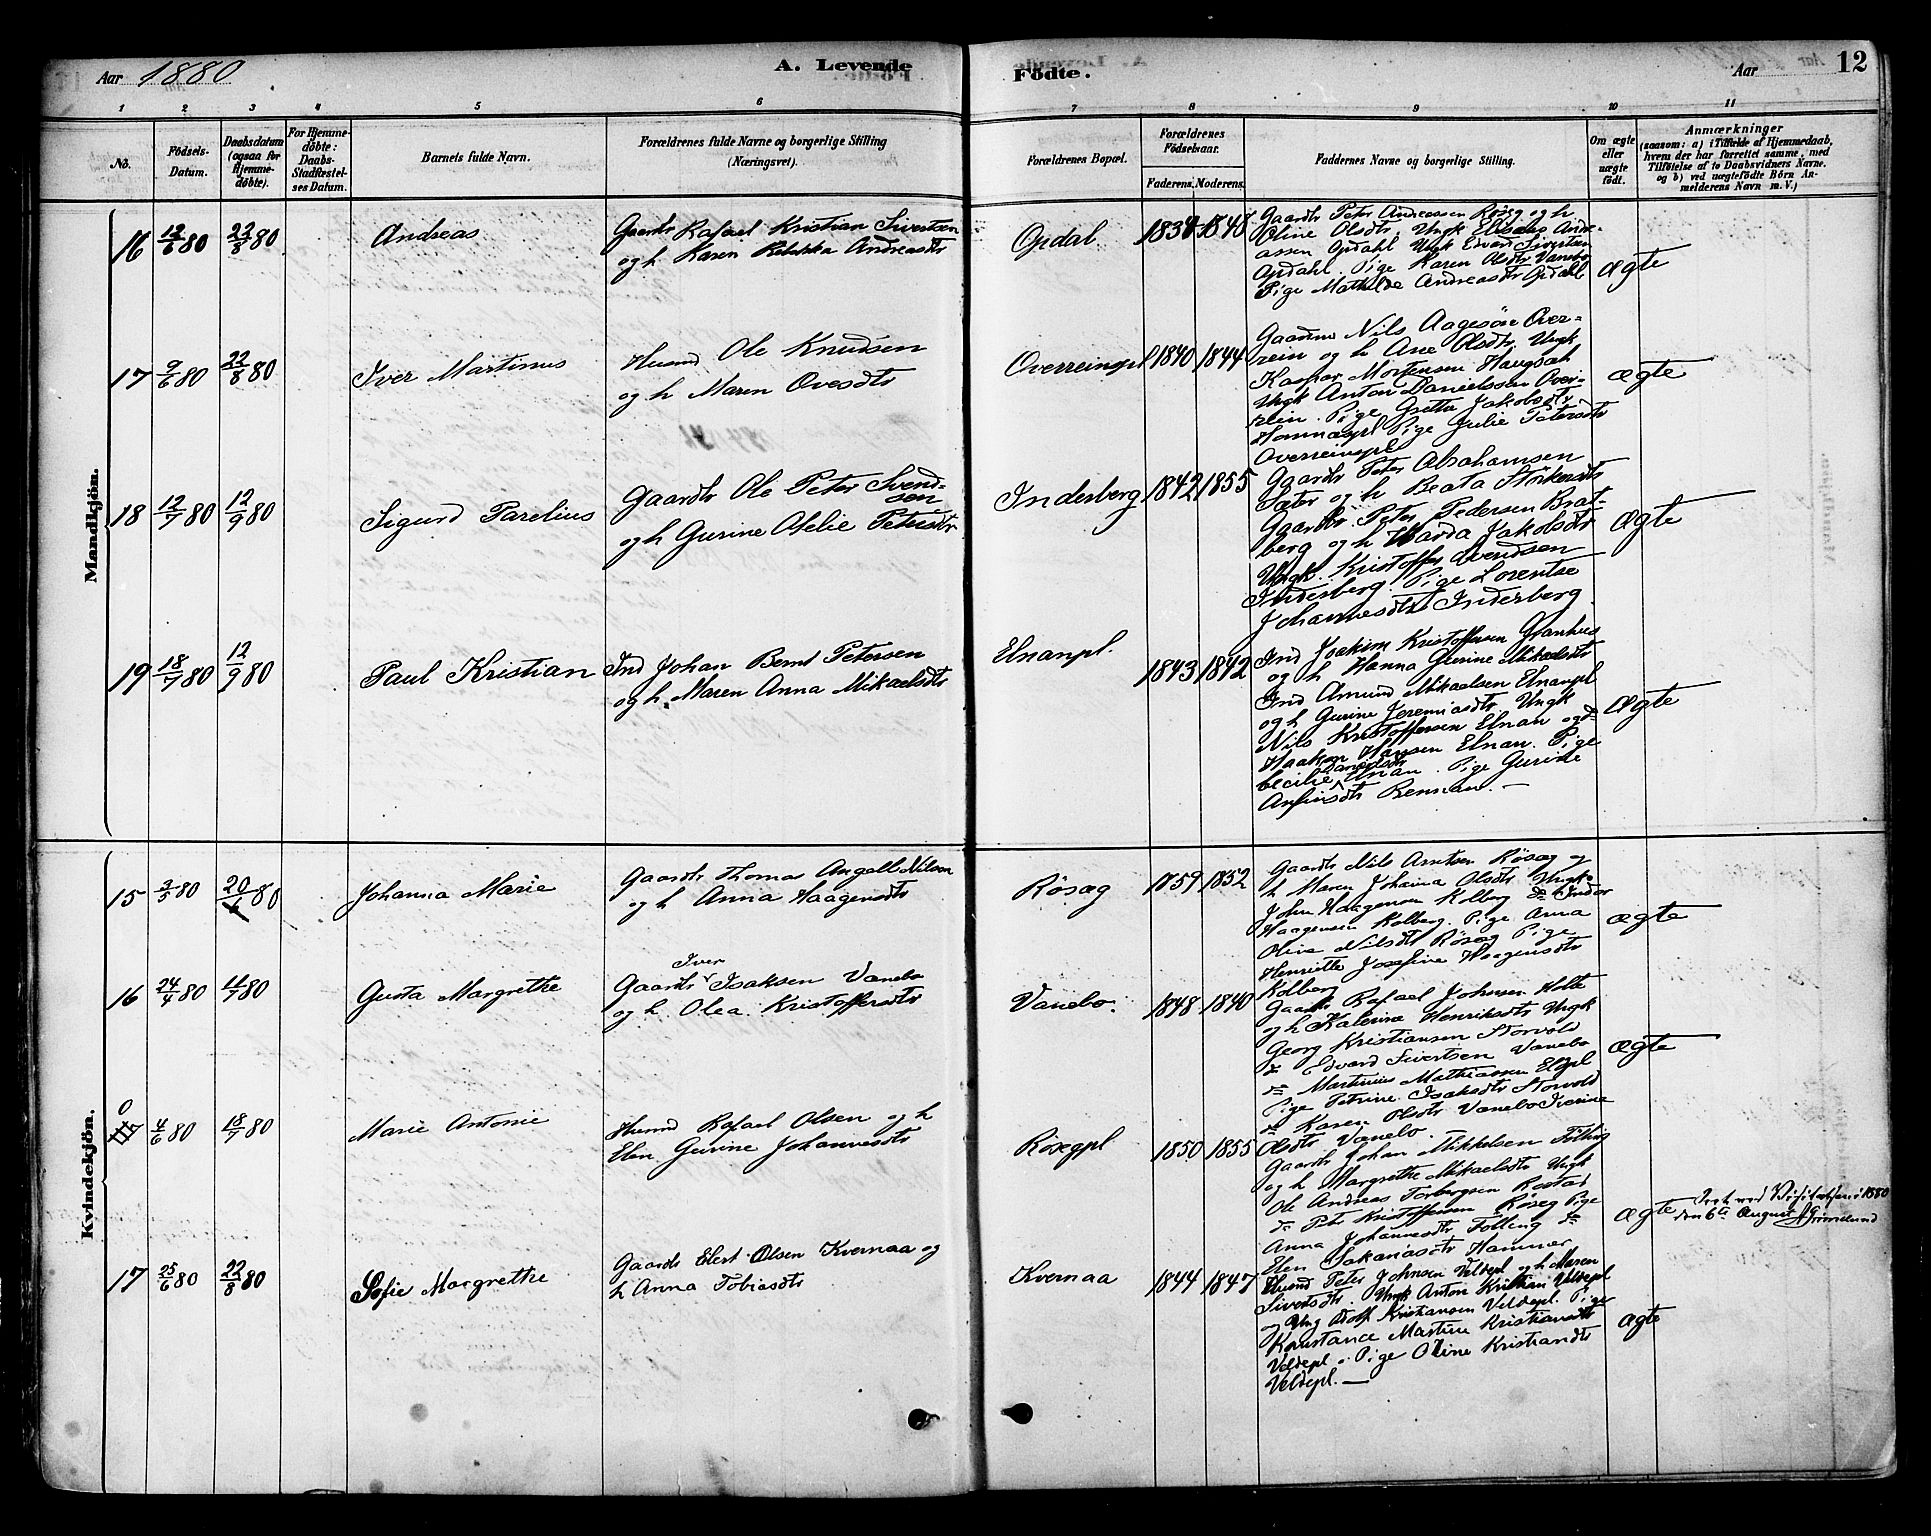 Aar 1880
A. Levende
Fødte.
Aar
12
1
2
3
4
5
6
7
8
9
10
11
No.
Fødsels-
Datum.
Daabsdatum
(ogsaa for
Hjemme-
døbte).
For Hjemme-
døbte:
Daabs-
Stadfæstel-
ses Datum.
Barnets fulde Navn.
Forældrenes fulde Navne og borgerlige Stilling
(Næringsvei).
Forældrenes Bopæl.
Forældrenes
Fødselsaar.
Faderens.
Moderens.
Faddernes Navne og borgerlige Stilling.
Om ægte
eller
uægte
født.
Anmærkninger
(saasom: a) i Tilfælde af Hjemmedaab,
hvem der har forrettet samme, med
Tilføielse af to Daabsvidners Navne,
og b) ved uægtefødte Børn An-
melderens Navn m. V.)
Mandkjön.
16
12/6 80
22/8 80
Andreas
Gaardr Rafael Kristian Sivertsen
og h Karen Rebekka Andreasdtr
Opdal
1834
1848
Gaardr Peter Andreassen Røseg og h
Oline Olsdtr. Ungk Elisæus Andre-
assen Opdahl Ungk Edvard Sivertsen
Opdahl. Pige Karen Olsdtr Vanebo
Pige Mathilde Andreasdtr Opdahl
ægte
17
9/6 80
22/8 80
Iver Martinus
Husmd Ole Knudsen
og h Maren Ovesdtr
Overreinspl
1840
1844
Gaardm Nils Aagesøn Over-
rein og h Ane Olsdtr. Ungk
Kaspar Mortensen Haugsah
Ungk Anton Danielssen Over-
rein. Pige Grethe Jakobsdtr
Hammerpl Pige Julie Petersdtr
Overreinspl
ægte
18
12/7 80
12/9 80
Sigurd Parelius
Gaardtr Ole Peter Svend-
sen
og h Gurine Ofelie Petersdtr
Inderberg
1842
1855
Gaardtr Peter Abrahamsen
Sæter og h Beata Størkersdtr
Gaardtr Peter Pedersen Brat-
berg og h Harda Jakobsdtr
Ungk. Kristoffer Svendsen
Inderberg. Pige Lorentse
Johannesdtr Inderberg
ægte
19
18/7 80
12/9 80
Paul Kristian
Ind Johan Bernt Petersen
og h. Maren Anna Mikaelsdtr
Elnanpl.
1843
1842
Ind Joakim Kristoffersen Granhus
og h Hanna Gurine Mikaelsdtr
Ind Amund Mikaelsen Elnanpl
og h Gurine Jeremiasdtr Ungk
Nils Kristoffersen Elnan og do
Haakon Hansen Elnan. Pige
Danielsdtr
Cecilie Elnan. Pige Gurine
Anfinsdtr Rennan.
ægte
Kvindekjön.
15
3/5 80
20/6 80
Johanna Marie
Gaardtr Thomas Angell Nilsen
og h Anna Haagensdtr
Røsæg
1859
1852
Gaardtr Nils Arntsen Røsæg og
h Maren Johanna Olsdtr Ungk-
John Haagensen Kolberg do Indor
Haagensen Kolberg. Pige Anna
Olive Nilsdtr Røsæg Pige
Henriette Josefine Haagensdtr
Kolberg
ægte
16
24/4 80
11/7 80
Gusta Margrethe
Iver
Gaardtr Isaksen Vanebo
og h Olea Kristoffersdtr
Vanebo.
1848
1840
Gaardtr Rafael Johnsen Holte
og h Katerine Henriksdtr Ungk
Georg Kristiansen Storvold
do Edvard Sivertsen Vanebo
do Martinus Mathiassen Elgpl
Pige Petrine Isaksdtr Storvold
do Karen Olsdtr Vanebo Iverine
Olsdtr Vanebo.
ægte
0
4/6 80
18/7 80
Marie Antonie
Husmd Rafael Olsen og h
Elen Gurine Johannesdtr
Røsegpl
1850
1855
Gaardtr Johan Mikkelsen Følling
og h Margrethe Mikaelsdtr Ungk
Ole Andreas Torbergsen Rostad
do Peter Kristoffersen Røseg Pige
Anna Johannesdtr Følling do
Elen Sakariasdtr Hammer
ægte
ved Visitatsen i 1880
den 6te August
17
25/6 80
22/8 80
Sofie Margrethe
Gaardtr Elert Olsen Kvernaa og
h Anna Tobiasdtr
Kvernaa
1844
1847
Husmd Peter Johnsen Veldepl og h Maren
Sivertsdtr. Ungk Anton Kristian Veldepl
og Ung Adolf Kristiansen Veldepl. Pige
Konstance Martine Kristiansdtr
Veldepl. Pige Oline Kristiansdtr
Veldepl.
ægte